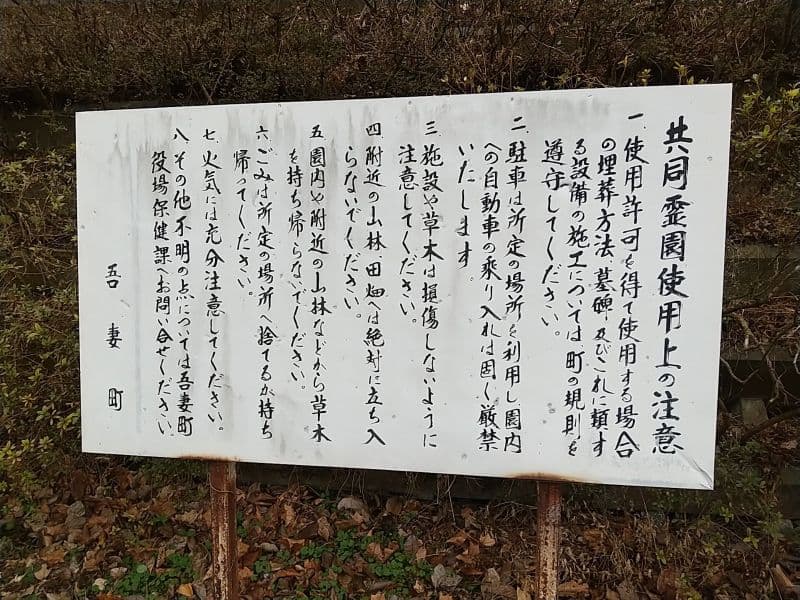 共同霊園使用上の注意
一.使用許可を得て使用する場合
の埋葬方法、墓碑及びこれに類す
る設備の施工については町の規則を
遵守してください。
二.駐車は所定の場所を利用し園内
への自動車の乗り入れは固く厳禁
いたします。
三.施設や草木は損傷しないように
注意してください。
四.附近の山林、田畑へは絶対に立ち入
らないでください。
五.園内や附近の山林などから草木
を持ち帰らないでください。
六.ごみは所定の場所へ捨てるか持ち
帰ってください。
七.火気には充分注意してください。
八.その他不明の点については吾妻町
役場保健課へお問い合せください。
吾妻町